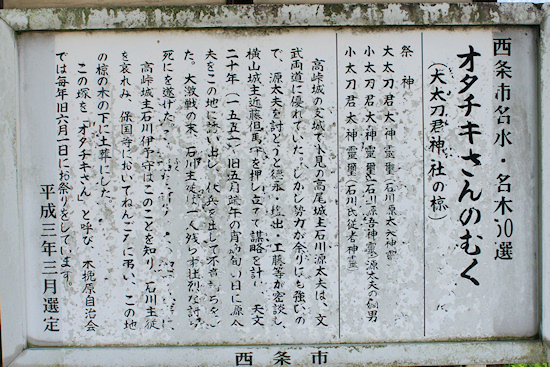 西条市名水・名木50選
オタチキさんのむく
(大太刀君神社の椋)
祭神
大太刀君大神霊璽 石川源太夫神霊
小太刀君大神霊璽 石川源吾神霊 源太夫の嫡男
小太刀君大神霊璽 石川氏従者神霊
高峠城の支城で氷見の高尾城主石川源太夫は、文
武両道に優れていた。しかし努力が余りにも強いの
で、源太夫を討とうと徳永・桧出・工藤等が密談し、
横山城主近藤但馬守を押し立てて謀略を計り、天文
二十年(一五五一)旧五月端午の宵節句の日に源太
夫をこの地に誘い出し、伏兵を出して不意打ちをし
た。大激戦の末、石川主従は一人残らず壮烈な討ち
死にを遂げた
高峠城主石川伊予守はこのことを知り、石川主従
を哀れみ、保国寺においてねんごろに弔い、この地
の椋の木の下に土葬にした。
この塚を「オタチキさん」と呼び、木挽原自治会
では毎年旧六月一日にお祭りをしています。
平成三年三月選定
西条市